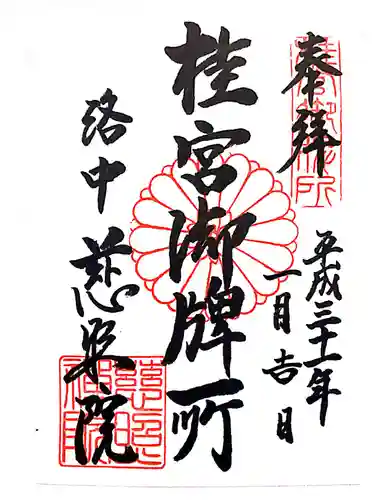 奉拝
平成三十一年
一月吉日
桂宮御牌所
洛中
慈照院